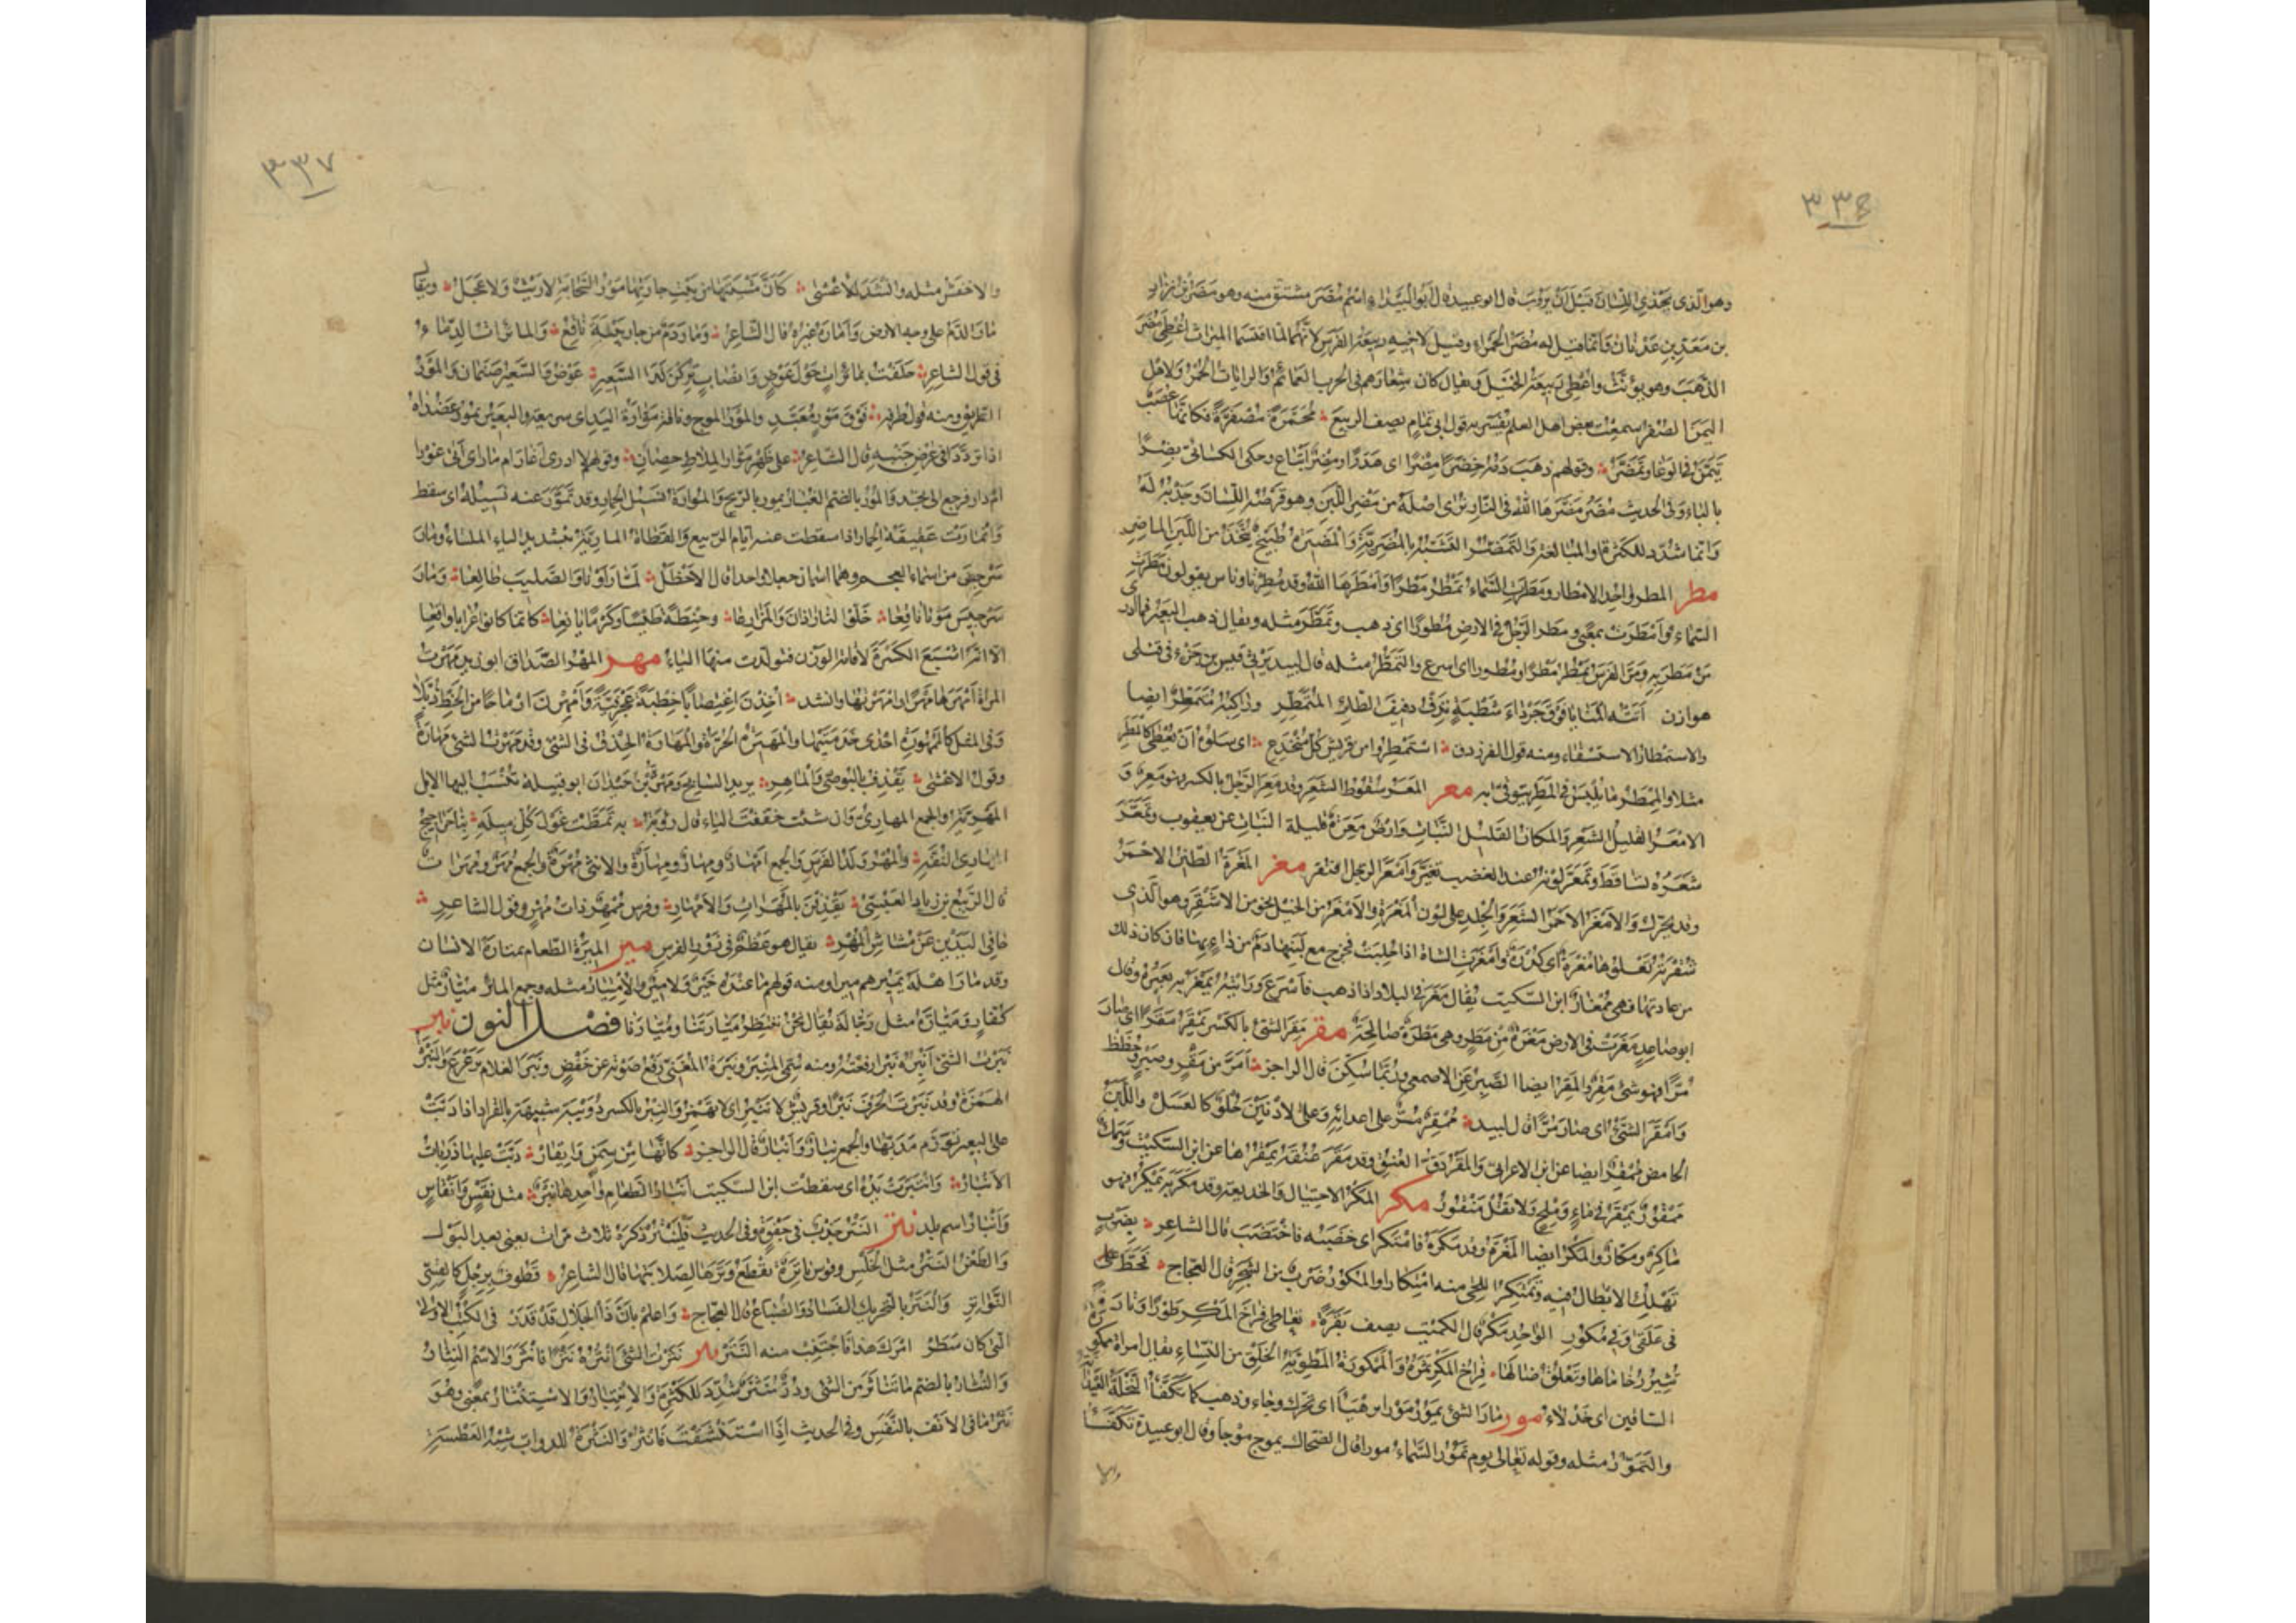 ٣٣٦
وهو الذى يحذى اللسان قبل ان يروب قال ابو عبيد قال ابو البيداء اسم مضر مشتق منه وهو مضر بن نزار
بن معد بن عدنان وانما قيل له مضر الحمراء وقيل لاخيه ربيعة الفرس لانهما لما اقتسما الميراث اعطى مضر
الذهب وهو يؤنث واعطى ربيعة الخيل ويقال كان شعارهم فى الحرب العمائم والرايات الحمر ولاهل
اليمن الصفر سمعت بعض اهل العلم يفسر به قول ابى تمام يصف الربيع محمرة مصفرة فكانما عصب
تيمن فى الوغا وتمضر وقولهم ذهب دمه خضرا مضرا اى هدرا ومضر اتباع وحكى الكسائى بضرا
بالباء وفى الحديث مضر مضرها الله فى النار نرى اصله من مضر اللبن وهو قرصه اللسان وحذيه له
وانما شدد للكثرة والمبالغة والتمضر التشبه بالمضرية والمضيرة طبيخ يتخذ من اللبن الماضر
مطر المطر واحد الامطار ومطرت السماء تمطر مطرا وامطرها الله وقد مطرنا وناس يقولون مطرت
السماء وامطرت بمعنى ومطر الرجل فى الارض مطورا اى ذهب وتمطر مثله ويقال ذهب البعير فما ادرى
من مطر به ومر الفرس يمطر مطرا ومطورا اى اسرع والتمطر مثله قال لبيد يرثى قيس بن جزء فى قتلى
هوازن اتته المنايا فوق جرداء شطبة تدف دفيف الطائر المتمطر وراكبه متمطر ايضا
والاستمطار الاستسقاء ومنه قول الفرزدق استمطروا من قريش كل منخدع اى سلوه ان يعطى كالمطر
مثلا والممطر ما يلبس فى المطر يتوقى به معر المعر سقوط الشعر وقد معر الرجل بالكسر فهو معر و
الامعر القليل الشعر والمكان القليل النبات وارض معرة قليلة النبات عن يعقوب وتمعر
شعره تساقط وتمعر لونه عند الغضب تغير وامعر الرجل افتقر مغر المغرة الطين الاحمر
وقد يحرك والامغر الاحمر الشعر والجلد على لون المغرة والامغر من الخيل نحو من الاشقر وهو الذى
شقرته تعلوها مغرة اى كدرة وامغرت الشاة اذا حلبت فخرج مع لبنها دم من داء بها فان كان ذلك
من عادتها فهى ممغار ابن السكيت يقال مغر فى البلاد اذا ذهب فاسرع ورايته يمغر به بعيره وقال
ابو صاعد مغرت فى الارض مغرة من مطر وهى مطرة صالحة مقر مقر الشئ بالكسر يمقر مقرا اى صار
مرا فهو شئ مقر والمقر ايضا الصبر عن الاصمعى وربما سكن قال الراجز امر من مقر وصبر وحظظ
وامقر الشئ اى صار مرا قال لبيد ممقر مر على اعدائه وعلى الادنين حلو كالعسل واللبن
الحامض ممقر ايضا عن ابن الاعرابى والمقر دق العنق وقد مقر عنقه يمقرها عن ابن السكيت وسمك
ممقور يمقر فى ماء وملح ولا تقل منقور مكر المكر الاحتيال والخديعة وقد مكر به يمكر فهو
ماكر ومكار والمكر ايضا المغرة وقد مكره فامتكر اى خضبه فاختضب قال الشاعر بضرب
تهلك الابطال فيه وتمتكر اللحى منه امتكارا والمكور ضرب من الشجر قال العجاج فحط
فى علقى وفى مكور الواحد مكر قال الكميت يصف بقرة تعاطى فراخ المكر طورا وتارة
تثير رخاماها وتعلق ضالها فراخ المكر ثمره والممكورة المطوية الخلق من النساء يقال امراة ممكورة
الساقين اى خدلاء مور مار الشئ يمور مورا ترهيا اى تحرك وجاء وذهب كما تكفأ النخلة العيدانة
والتمور مثله وقوله تعالى يوم تمور السماء مورا قال الضحاك يموج موجا وقال ابو عبيدة تكفأ
والا
٣٣٧
والاخفش مثله وانشد للاعشى كان مشيتها من بيت جارتها مور السحابة لا ريث ولا عجل ويقال
مار الدم على وجه الارض واماره غيره قال الشاعر ومار دم من جار بيبة ناقع والمائرات الدماء
فى قول الشاعر حلفت بمائرات حول عوض وانصاب تركن لدى السعير عوض والسعير صنمان والمور
الطريق ومنه قول طرفة فوق مور معبد والمور الموج وناقة موارة اليد اى سريعة والبعير يمور عضداه
اذا ترددا فى عرض جنبه قال الشاعر على ظهر موار الملاط حصان وقولهم لا ادرى اغار ام مار اى اتى غورا
ام دار فرجع الى نجد والمور بالضم الغبار يمور بالريح والموارة نسيل الحمار وقد تمور عنه نسيله اى سقط
وانمارت عقيقة الحمار اذا سقطت عنه ايام الربيع والقطاة المارية بتشديد الياء الملساء ومار
سرجس من اسماء العجم وهما اسمان جعلا واحدا قال الاخطل لما راونا والصليب طالعا ومار
سرجيس وموتا ناقعا خلوا لنا راذان والمزارعا وحنطة طيسا وكرما يانعا كانما كانوا غرابا واقعا
الا انه اشبع الكسرة لاقامة الوزن فتولدت منها الياء مهر المهر الصداق ابو زيد مهرت
المراة امهرها مهرا وامهرتها وانشد اخذن اغتصابا خطبة عجرفية وامهرن ارماحا من الخط ذبلا
وفى المثل كالممهورة احدى خدمتيها والمهيرة الحرة والمهارة الحذق فى الشئ وقد مهرت الشئ مهارة
وقول الاعشى يقذف بالبوصى والماهر يريد السابح ومهرة بن حيدان ابو قبيلة تنسب اليها الابل
المهرية والجمع المهارى وان شئت خففت الياء قال رؤبة به تمطت غول كل ميله بنا حراجيج
المهارى النفه والمهر ولد الفرس والجمع امهار ومهار ومهارة والانثى مهرة والجمع مهر ومهرات
قال الربيع بن زياد العبسى يقذفن بالمهرات والامهار وفرس ممهر ذات مهر وقول الشاعر
جافى اليدين عن مشاش المهر يقال هو عظم فى زور الفرس مير الميرة الطعام يمتاره الانسان
وقد مار اهله يميرهم ميرا ومنه قولهم ما عنده خير ولا مير والامتيار مثله وجمع المائر ميار مثل
كفار وميارة مثل رجالة يقال نحن ننتظر ميارتنا وميارنا فصل النون نبر
نبرت الشئ انبره نبرا رفعته ومنه سمى المنبر ونبرة المغنى رفع صوته عن خفض ونبر الغلام ترعرع والنبر
الهمزة وقد نبرت الحرف نبرا وقريش لا تنبر اى لا تهمز والنبر بالكسر دويبة شبيهة بالقراد اذا دبت
على البعير تورم مدبها والجمع نبار وانبار قال الراجز كانها من سمن وايقار دبت عليها ذربات
الانبار وانتبرت يده اى تنفطت ابن السكيت انبار الطعام واحدها نبر مثل نقس وانقاس
وانبار اسم بلد نتر النتر جذب فى جفوة وفى الحديث فلينتر ذكره ثلاث مرات يعنى بعد البول
والطعن النتر مثل الخلس وقوس ناترة تقطع وترها لصلابتها قال الشاعر قطوف برجل كالقسى
النواتر والنتر بالتحريك الفساد والضياع قال العجاج واعلم بان ذا الجلال قد قدر فى الكتب الاولى
التى كان سطر امرك هذا فاجتنب منه النتر نثر نثرت الشئ انثره نثرا فانتثر والاسم النثار
والنثار بالضم ما تناثر من الشئ ودر منثر شدد للكثرة والانتثار والاستنثار بمعنى وهو
نثر ما فى الانف بالنفس وفى الحديث اذا استنشقت فانثر والنثرة للدواب شبه العطسة